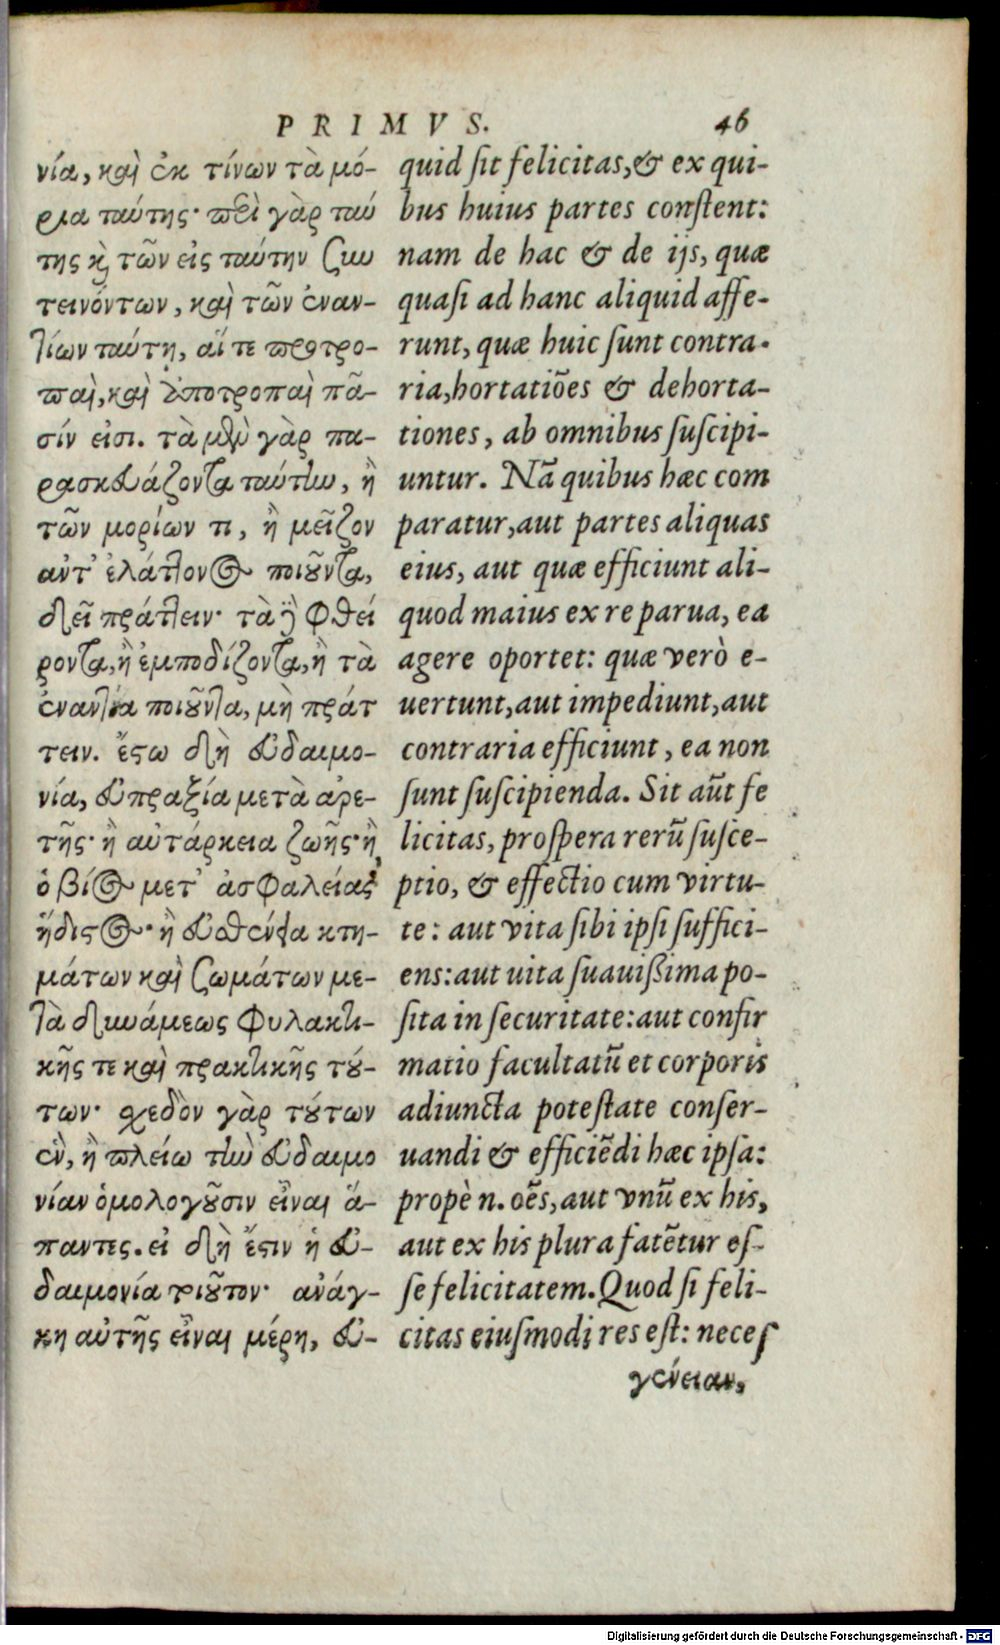 PRIMVS. 46
νία, καὶ ἐκ τίνων τὰ μό-
ρια ταύτης· περὶ γὰρ ταύ
της καὶ τῶν εἰς ταύτην συν
τεινόντων, καὶ τῶν ἐναν-
τίων ταύτῃ, αἵ τε προτρο-
παὶ, καὶ ἀποτροπαὶ πᾶ-
σίν εἰσι. τὰ μὲν γὰρ πα-
ρασκευάζοντα ταύτην, ἢ
τῶν μορίων τι, ἢ μεῖζον
ἀντ' ἐλάττονος ποιοῦντα,
δεῖ πράττειν· τὰ δὲ φθεί
ροντα, ἢ ἐμποδίζοντα, ἢ τὰ
ἐναντία ποιοῦντα, μὴ πράτ
τειν. ἔστω δὴ εὐδαιμο-
νία, εὐπραξία μετὰ ἀρε-
τῆς· ἢ αὐτάρκεια ζωῆς· ἢ
ὁ βίος μετ' ἀσφαλείας
ἥδιστος· ἢ εὐθένεια κτη-
μάτων καὶ σωμάτων με-
τὰ δυνάμεως φυλακτι-
κῆς τε καὶ πρακτικῆς τού-
των· σχεδὸν γὰρ τούτων
ἓν, ἢ πλείω τὴν εὐδαιμο
νίαν ὁμολογοῦσιν εἶναι ἅ-
παντες. εἰ δὴ ἔστιν ἡ εὐ-
δαιμονία τοιοῦτον· ἀνάγ-
κη αὐτῆς εἶναι μέρη, εὐ-
quid sit felicitas,& ex qui-
bus huius partes constent:
nam de hac & de ijs, quæ
quasi ad hanc aliquid affe-
runt, quæ huic sunt contra-
ria,hortatiões & dehorta-
tiones, ab omnibus suscipi-
untur. Nã quibus hæc com
paratur,aut partes aliquas
eius, aut quæ efficiunt ali-
quod maius ex re parua, ea
agere oportet: quæ verò e-
uertunt,aut impediunt,aut
contraria efficiunt, ea non
sunt suscipienda. Sit aũt fe
licitas, prospera rerũ susce-
ptio, & effectio cum virtu-
te: aut vita sibi ipsi suffici-
ens:aut uita suauißima po-
sita in securitate:aut confir
matio facultatũ et corporis
adiuncta potestate conser-
uandi & efficiẽdi hæc ipsa:
propè n. oẽs, aut vnũ ex his,
aut ex his plura fatẽtur es-
se felicitatem. Quod si feli-
citas eiusmodi res est: neces
γένειαν,
Digitalisierung gefördert durch die Deutsche Forschungsgemeinschaft - DFG